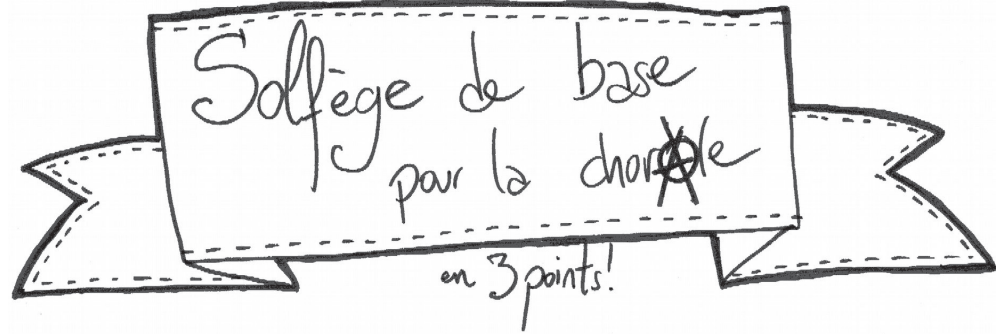 Solfège de base
pour la chorAle
en 3 points!